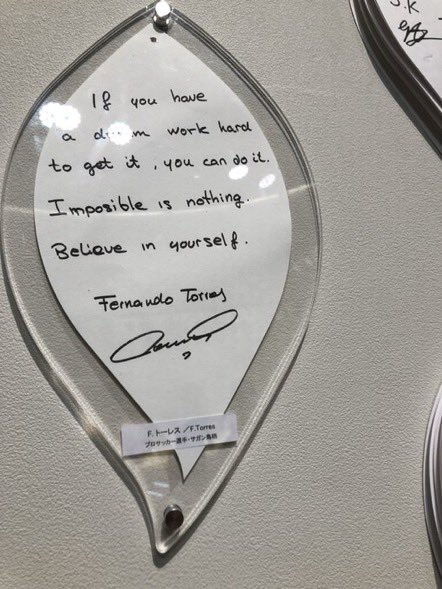 If you have
a dream work hard
to get it , you can do it.
Imposible is nothing.
Believe in yourself.
Fernando Torres
F.トーレス／F.Torres
プロサッカー選手・サガン鳥栖